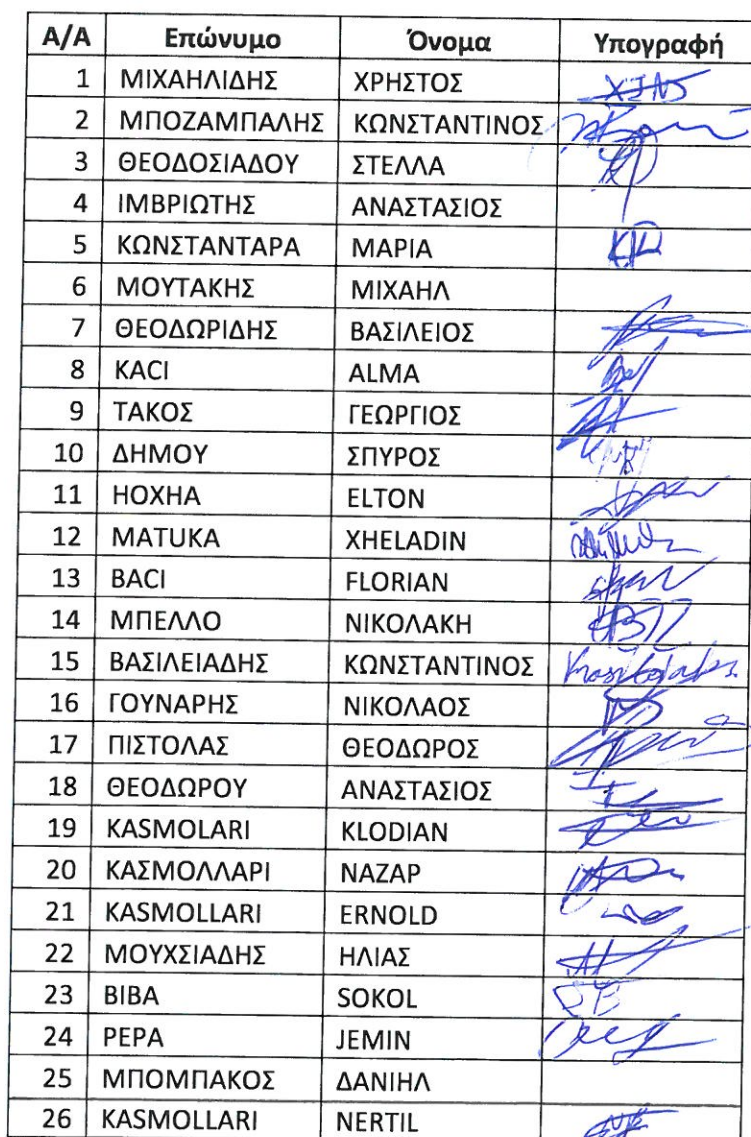 Α/Α Επώνυμο Όνομα Υπογραφή
1 ΜΙΧΑΗΛΙΔΗΣ ΧΡΗΣΤΟΣ
2 ΜΠΟΖΑΜΠΑΛΗΣ ΚΩΝΣΤΑΝΤΙΝΟΣ
3 ΘΕΟΔΟΣΙΑΔΟΥ ΣΤΕΛΛΑ
4 ΙΜΒΡΙΩΤΗΣ ΑΝΑΣΤΑΣΙΟΣ
5 ΚΩΝΣΤΑΝΤΑΡΑ ΜΑΡΙΑ
6 ΜΟΥΤΑΚΗΣ ΜΙΧΑΗΛ
7 ΘΕΟΔΩΡΙΔΗΣ ΒΑΣΙΛΕΙΟΣ
8 KACI ALMA
9 ΤΑΚΟΣ ΓΕΩΡΓΙΟΣ
10 ΔΗΜΟΥ ΣΠΥΡΟΣ
11 HOXHA ELTON
12 MATUKA XHELADIN
13 BACI FLORIAN
14 ΜΠΕΛΛΟ ΝΙΚΟΛΑΚΗ
15 ΒΑΣΙΛΕΙΑΔΗΣ ΚΩΝΣΤΑΝΤΙΝΟΣ
16 ΓΟΥΝΑΡΗΣ ΝΙΚΟΛΑΟΣ
17 ΠΙΣΤΟΛΑΣ ΘΕΟΔΩΡΟΣ
18 ΘΕΟΔΩΡΟΥ ΑΝΑΣΤΑΣΙΟΣ
19 KASMOLARI KLODIAN
20 ΚΑΣΜΟΛΛΑΡΙ ΝΑΖΑΡ
21 KASMOLLARI ERNOLD
22 ΜΟΥΧΣΙΑΔΗΣ ΗΛΙΑΣ
23 BIBA SOKOL
24 PEPA JEMIN
25 ΜΠΟΜΠΑΚΟΣ ΔΑΝΙΗΛ
26 KASMOLLARI NERTIL